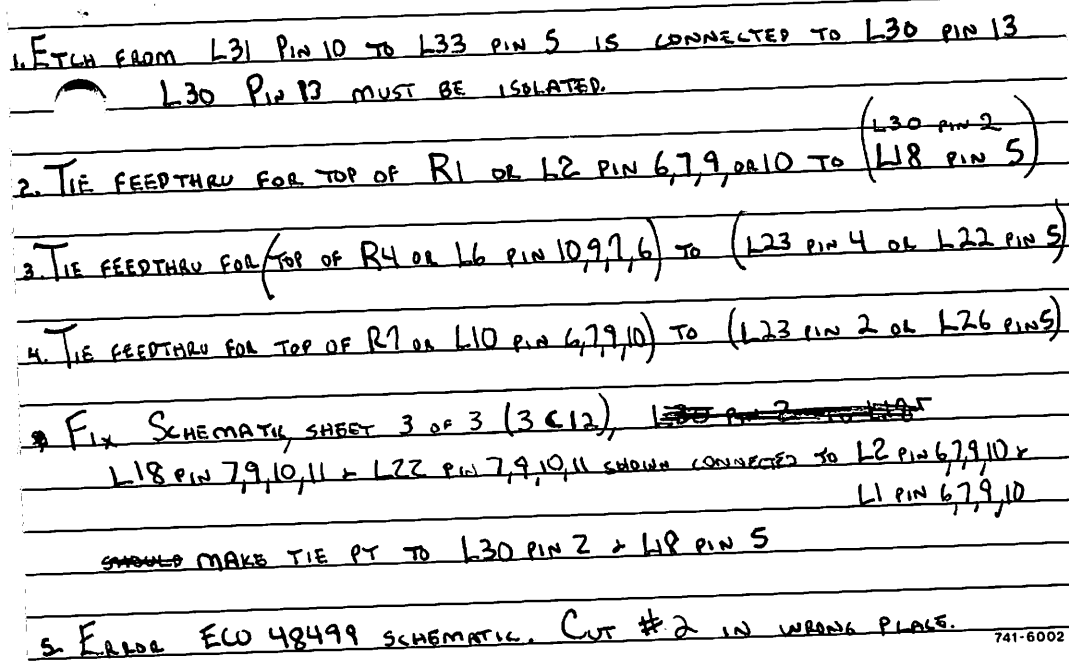 1. ETCH FROM L31 PIN 10 TO L33 PIN 5 IS CONNECTED TO L30 PIN 13
L30 PIN 13 MUST BE ISOLATED.
(L30 PIN 2
2. TIE FEEDTHRU FOR TOP OF R1 OR L2 PIN 6,7,9, OR 10 TO L18 PIN 5)
3. TIE FEEDTHRU FOR (TOP OF R4 OR L6 PIN 10,9,7,6) TO (L23 PIN 4 OR L22 PIN 5)
4. TIE FEEDTHRU FOR TOP OF R7 OR L10 PIN 6,7,9,10) TO (L23 PIN 2 OR L26 PIN 5)
FIX SCHEMATIC, SHEET 3 OF 3 (3 C 12), L30 PIN 2 TO L18
L18 PIN 7,9,10,11 & L22 PIN 7,9,10,11 SHOWN CONNECTED TO L2 PIN 6,7,9,10 &
L1 PIN 6,7,9,10
SHOULD MAKE TIE PT TO L30 PIN 2 & L18 PIN 5
5. ERROR ECO 48499 SCHEMATIC. CUT #2 IN WRONG PLACE.
741-6002